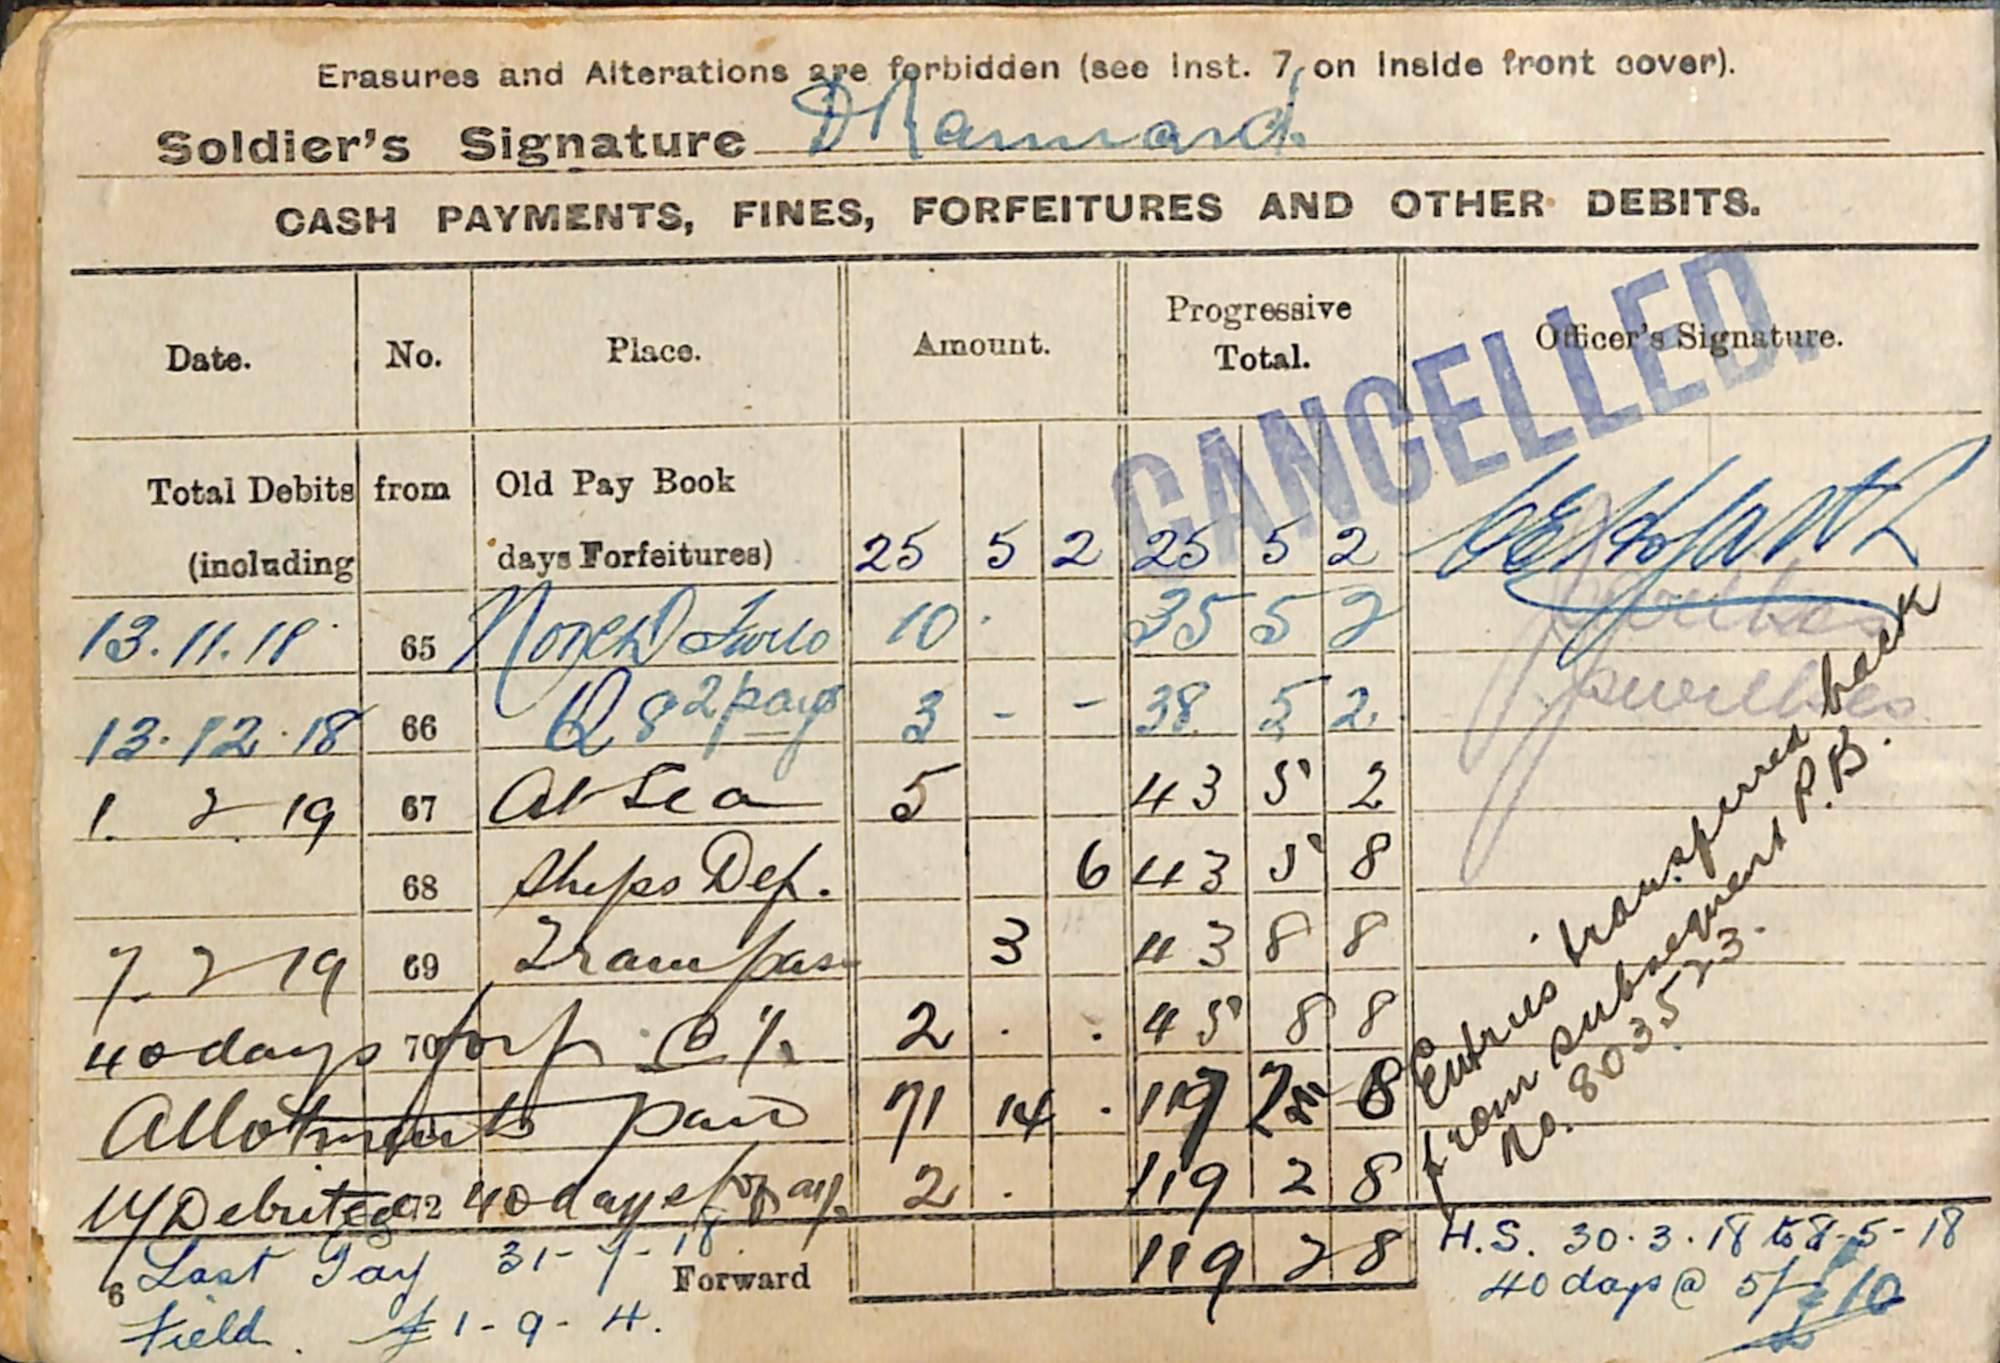 Erasures and Alterations are forbidden (see inst. 7, on inside front cover).
Soldier's Signature
CASH PAYMENTS, FINES, FORFEITURES AND OTHER DEBITS.
Date. No. Place. Amount. Progressive Total. Officer's Signature.
CANCELLED.
Total Debits from Old Pay Book
(including days Forfeitures) 25 5 2 25 5 2
13.11.18 65 10 35 5 2
13.12.18 66 3 - - 38 5 2
1. 2. 19 67 At Sea 5 43 5 2
68 Ships Def. 6 43 5 8
7. 2 19 69 3 43 8 8
40 days 70 forf @ 1/- 2 . . 45 8 8
Allotments paid 71 14 . 117 2 8
Debited 72 40 days 2 . 119 2 8
Forward 119 2 8
6 Last Pay 31-7-18
Field. £1-9-4.
Entries transferred back
from subsequent P.B.
No. 803523.
H.S. 30.3.18 to 8-5-18
40 days @ 5/- £10